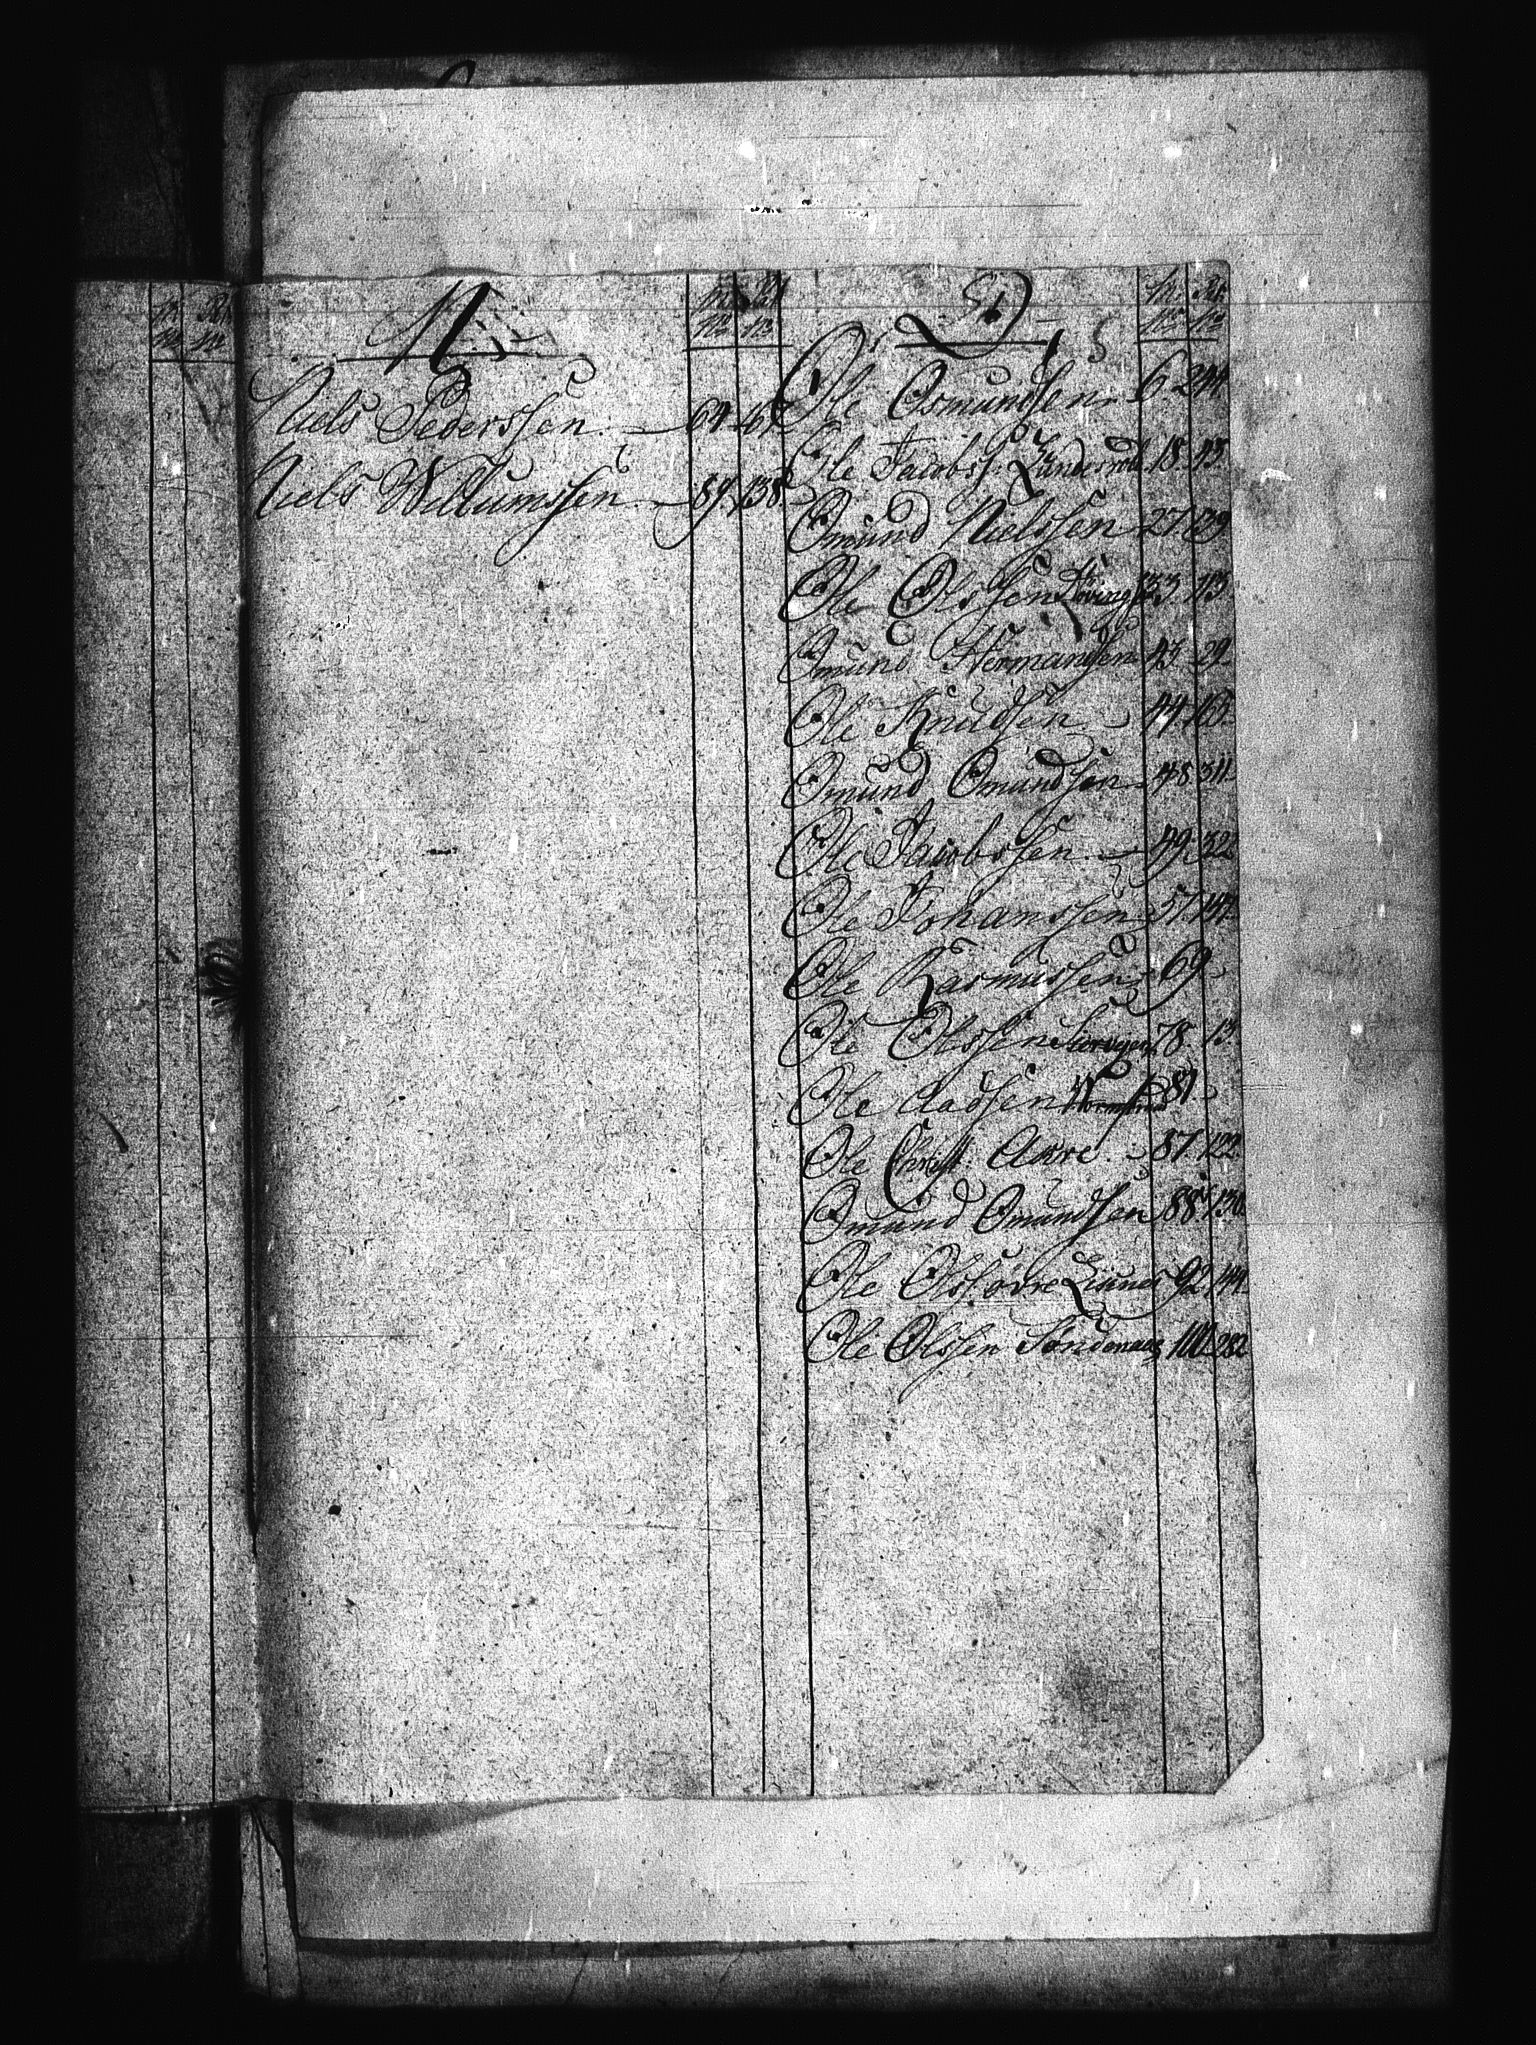 N
Niels Pederssen 64
Niels Willumssen 89 138
O
Ole Osmundsen 6 244
Ole Jacobs: 18 43
Omund Nielssen 27 139
Ole Olssen 33 113
Omund Hermansen 43 29
Ole Knudsen 44 165
Omund Omundsen 48 311
Ole Jacobssen 49 322
Ole Johanssen 57
Ole Rasmussen 69
Ole Olssen 78 13
Ole Aadsen 81
Ole Christ: Aarre 87 122
Omund Omundsen 88 130
Ole Olss: øvre 92 144
Ole Olssen Søndenaae 101 282